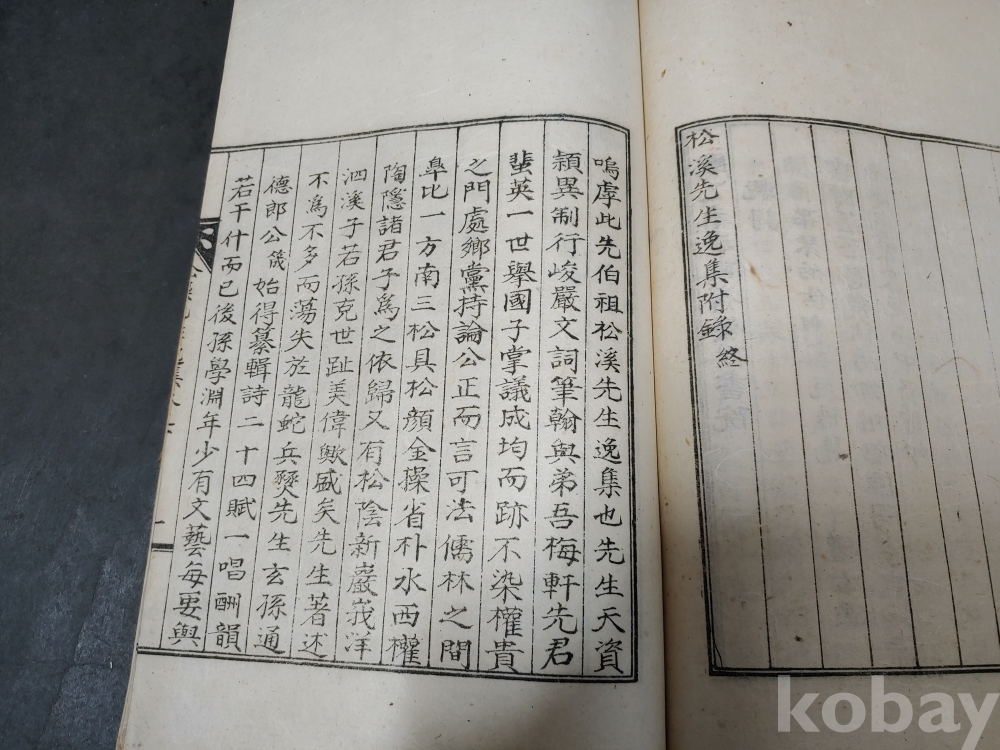 松溪先生逸集附錄終
嗚虖此先伯祖松溪先生逸集也先生天資
穎異制行峻嚴文詞筆翰與弟吾梅軒先君
蜚英一世舉國子掌議成均而跡不染權貴
之門處鄉黨持論公正而言可法儒林之間
臯比一方南三松具松顔金操省朴水西權
陶隱諸君子爲之依歸又有松陰新巖峩洋
泗溪子若孫克世趾美偉歟盛矣先生著述
不爲不多而蕩失於龍蛇兵燹先生玄孫通
德郎公𬒳始得纂輯詩二十四賦一唱酬韻
若干什而已後孫學淵年少有文藝每要與
kobay